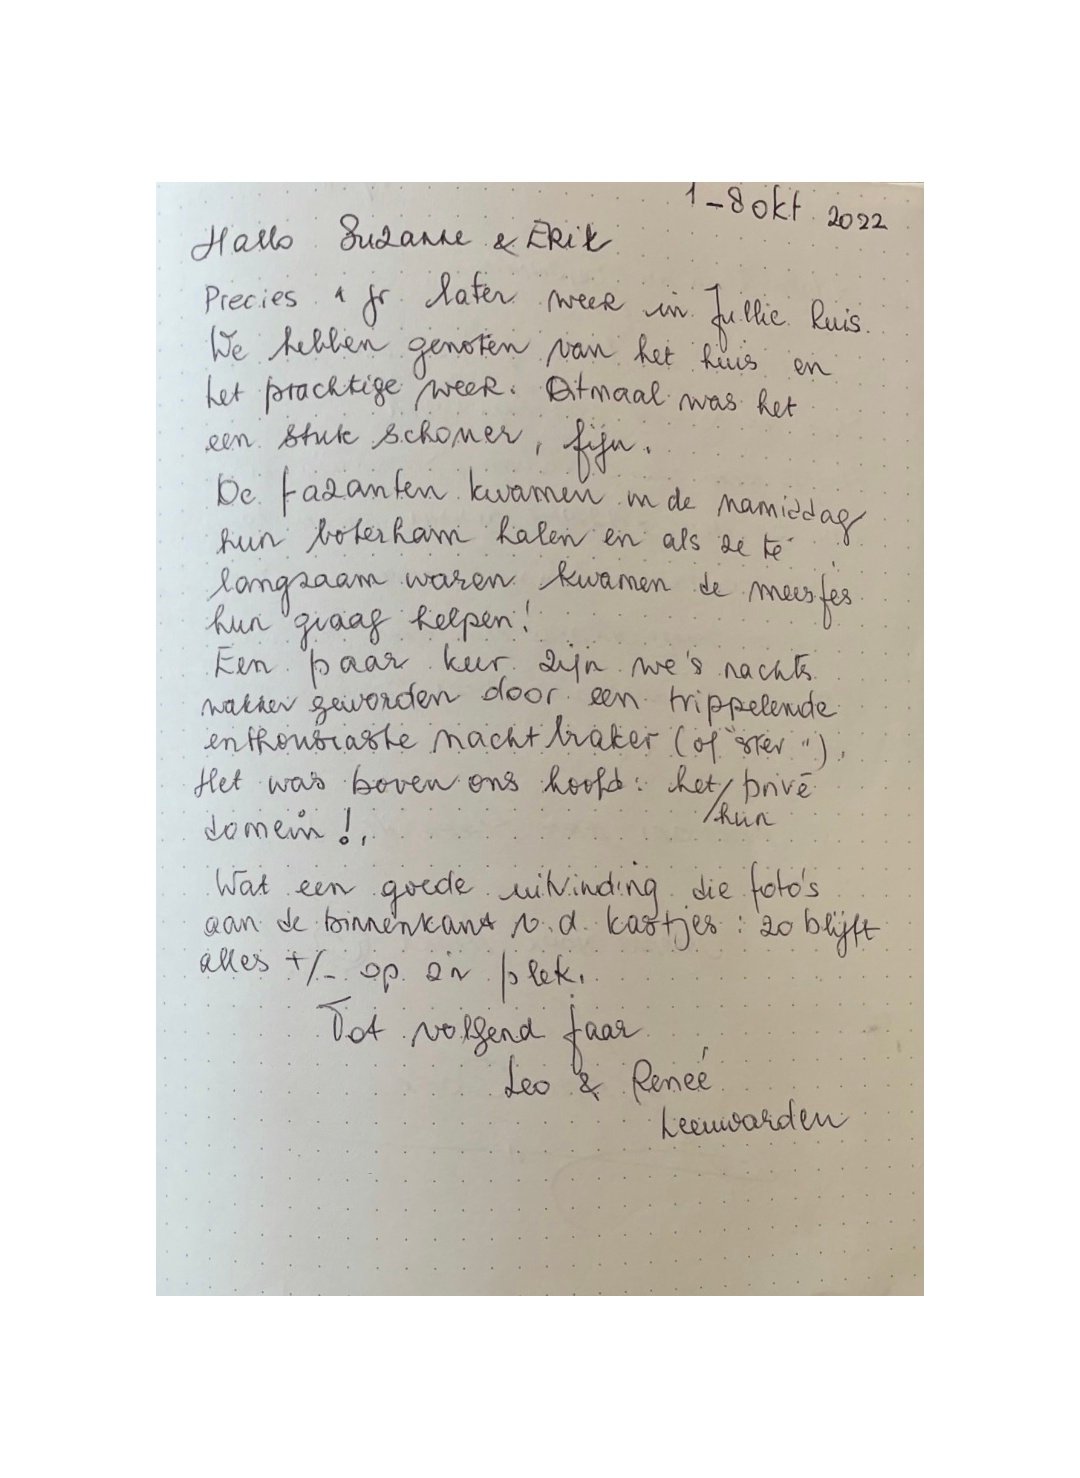 1-8 okt 2022
Hallo Suzanne & Erik
Precies 1 jr later weer in jullie huis.
We hebben genoten van het huis en
het prachtige weer. Ditmaal was het
een stuk schoner, fijn.
De fazanten kwamen in de namiddag
hun boterham halen en als ze te
langzaam waren kwamen de meesjes
hun graag helpen!
Een paar keer zijn we 's nachts
wakker geworden door een trippelende
enthousiaste nachtbraker (of "ster").
Het was boven ons hoofd: het/hun privé
domein!.
Wat een goede uitvinding die foto's
aan de binnenkant v.d. kastjes: zo blijft
alles +/- op z'n plek.
Tot volgend jaar
Leo & Reneé
Leeuwarden